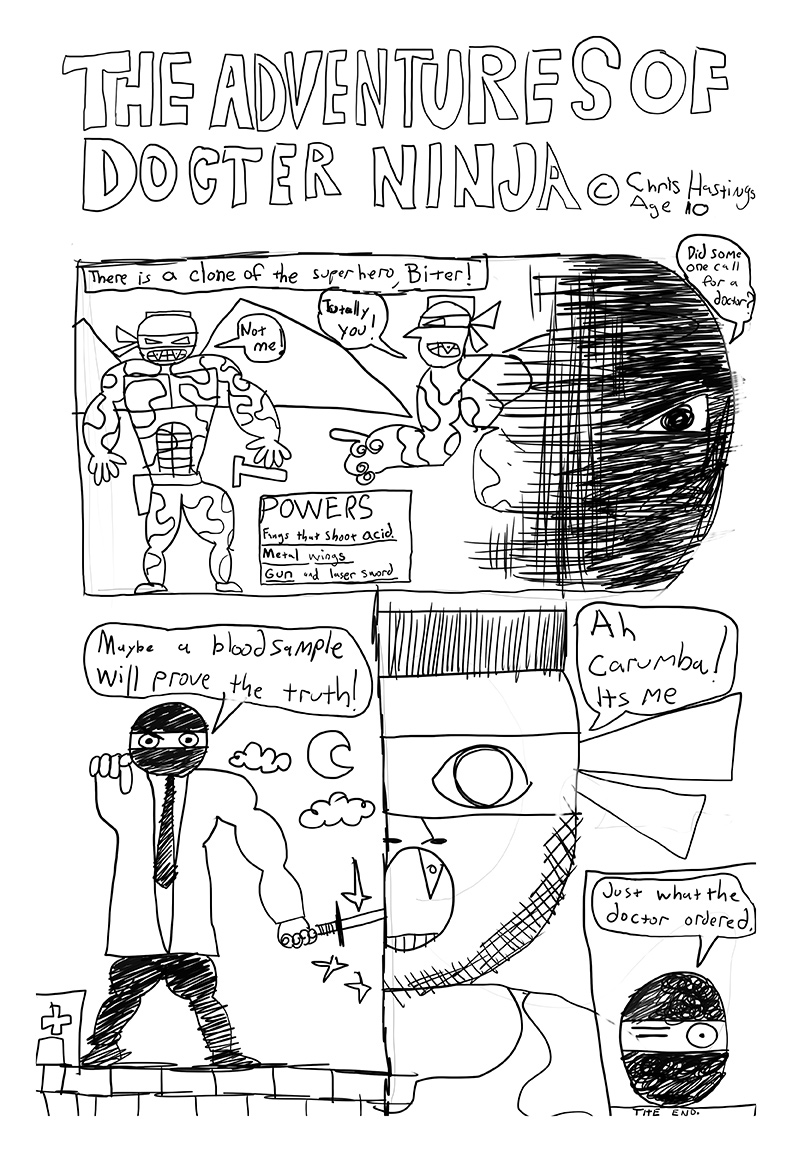 THE ADVENTURES OF
DOCTER NINJA © Chris Hastings
Age 10
There is a clone of the superhero, Biter!
Not
me!
Totally
you!
Did some
one call
for a
doctor?
POWERS
Fangs that shoot acid
Metal wings
Gun and laser sword
Maybe a blood sample
Will prove the truth!
Ah
Carumba!
Its me
Just what the
doctor ordered.
THE END.